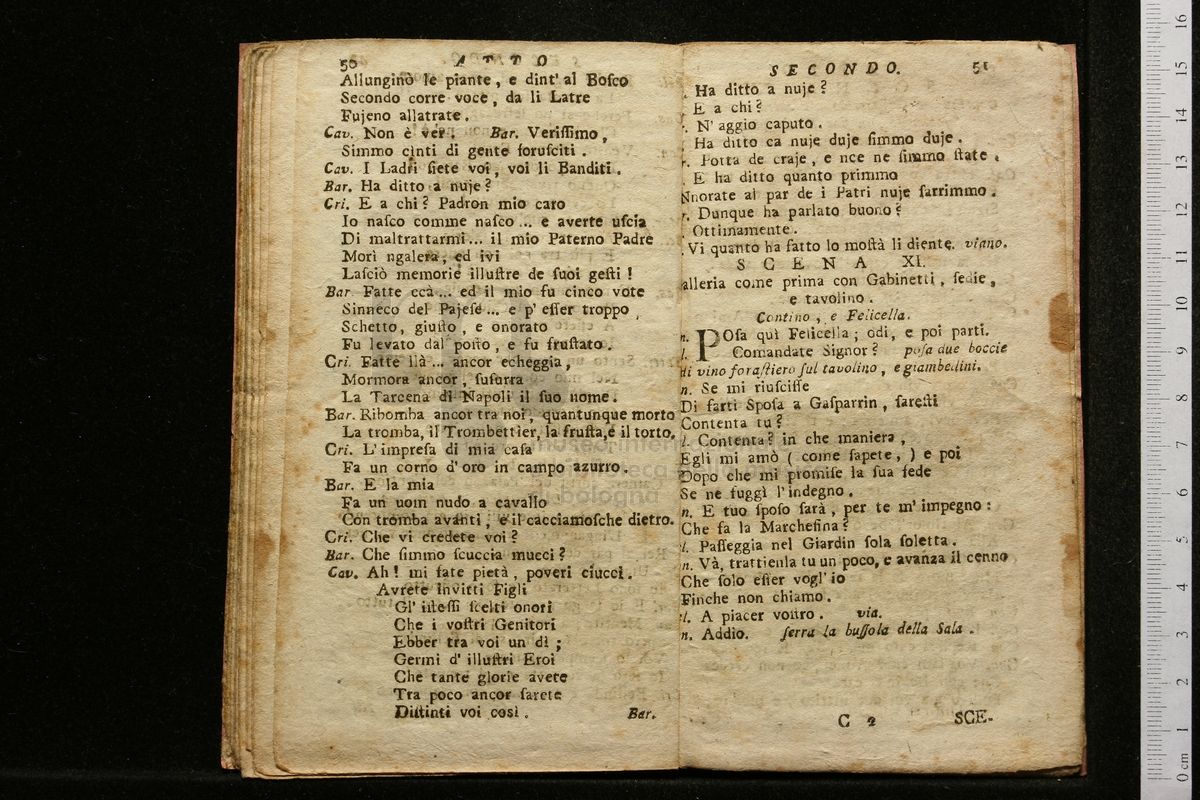 50 ATTO
Allunginò le piante, e dint' al Bosco
Secondo corre voce, da li Latre
Fujeno allatrate.
Cav. Non è ver. Bar. Verissimo,
Simmo cinti di gente forusciti.
Cav. I Ladri siete voi, voi li Banditi.
Bar. Ha ditto a nuje?
Cri. E a chi? Padron mio caro
Io nasco comme nasco ... e averte uscia
Di maltrattarmi ... il mio Paterno Padre
Morì ngalera, ed ivi
Lasciò memorie illustre de suoi gesti!
Bar. Fatte ccà ... ed il mio fu cinco vote
Sinneco del Pajese ... e p' esser troppo
Schetto, giusto, e onorato
Fu levato dal posto, e fu frustato.
Cri. Fatte llà ... ancor echeggia,
Mormora ancor, susurra
La Tarcena di Napoli il suo nome.
Bar. Ribomba ancor tra noi, quantunque morto
La tromba, il Trombettier, la frusta, e il torto.
Cri. L'impresa di mia casa
Fa un corno d'oro in campo azurro.
Bar. E la mia
Fa un uom nudo a cavallo
Con tromba avanti, e il cacciamosche dietro.
Cri. Che vi credete voi?
Bar. Che simmo scuccia mucci?
Cav. Ah! mi fate pietà, poveri ciucci.
Avrete invitti Figli
Gl' istessi scelti onori
Che i vostri Genitori
Ebber tra voi un dì;
Germi d' illustri Eroi
Che tante glorie avete
Tra poco ancor sarete
Distinti voi così.
Bar.
SECONDO. 51
Ha ditto a nuje?
E a chi?
N' aggio caputo.
Ha ditto ca nuje duje simmo duje.
Potta de craje, e nce ne simmo state.
E ha ditto quanto primmo
Nnorate al par de i Patri nuje sarrimmo.
Dunque ha parlato buono?
Ottimamente.
Vi quanto ha fatto lo mostà li diente. viano.
SCENA XI.
alleria come prima con Gabinetti, sedie,
e tavolino.
Contino, e Felicella.
n. POsa quì Felicella; odi, e poi parti.
l. Comandate Signor? posa due boccie
di vino forastiero sul tavolino, e giambellini.
n. Se mi riuscisse
Di farti Sposa a Gasparrin, saresti
Contenta tu?
l. Contenta? in che maniera,
Egli mi amò (come sapete,) e poi
Dopo che mi promise la sua fede
Se ne fuggì l'indegno.
n. E tuo sposo sarà, per te m' impegno:
Che fa la Marchesina?
l. Passeggia nel Giardin sola soletta.
n. Và, trattienla tu un poco, e avanza il cenno
Che solo esser vogl' io
Finche non chiamo.
l. A piacer vostro. via.
n. Addio. serra la bussola della Sala.
C 2 SCE-
0 cm 1 2 3 4 5 6 7 8 9 10 11 12 13 14 15 16